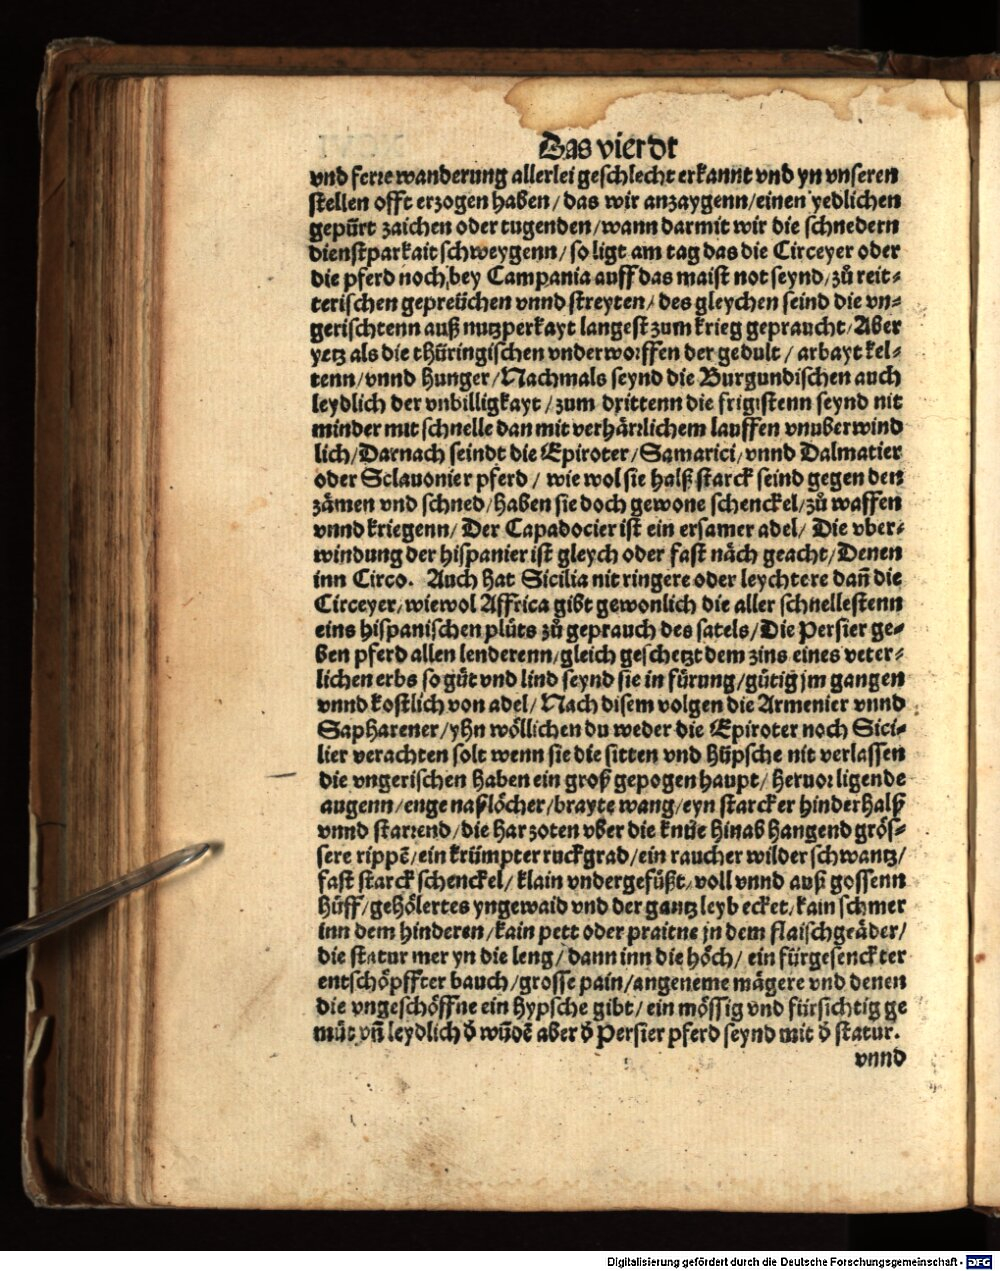 Das vierdt
vnd ferre wanderung allerlei geschlecht erkannt vnd yn vnseren
stellen offt erzogen haben / das wir anzaygenn / einen yedlichen
gepürt zaichen oder tugenden / wann darmit wir die schnedern
dienstparkait schweygenn / so ligt am tag das die Circeyer oder
die pferd noch bey Campania auff das maist not seynd / zů reit⸗
terischen gepreüchen vnnd streyten / des gleychen seind die vn⸗
gerischtenn auß nutzperkayt langest zum krieg gepraucht / Aber
yetz als die thüringischen vnderworffen der gedult / arbayt kel⸗
tenn / vnnd hunger / Nachmals seynd die Burgundischen auch
leydlich der vnbilligkayt / zum drittenn die frigistenn seynd nit
minder mit schnelle dan mit verhärrlichem lauffen vnuberwind
lich / Darnach seindt die Epiroter / Samarici / vnnd Dalmatier
oder Sclauonier pferd / wie wol sie halß starck seind gegen den
zämen vnd schned / haben sie doch gewone schenckel / zů waffen
vnnd kriegenn / Der Capadocier ist ein ersamer adel / Die vber⸗
windung der hispanier ist gleych oder fast näch geacht / Denen
inn Circo. Auch hat Sicilia nit ringere oder leychtere dañ die
Circeyer / wiewol Affrica gibt gewonlich die aller schnellestenn
eins hispanischen plůts zů geprauch des satels / Die Persier ge⸗
ben pferd allen lenderenn / gleich geschetzt dem zins eines veter⸗
lichen erbs so gůt vnd lind seynd sie in fürung / gütig jm gangen
vnnd kostlich von adel / Nach disem volgen die Armenier vnnd
Sapharener / yhn wöllichen du weder die Epiroter noch Sici⸗
lier verachten solt wenn sie die sitten vnd hüpsche nit verlassen
die vngerischen haben ein groß gepogen haupt / heruor ligende
augenn / enge naßlöcher / brayte wang / eyn starcker hinderhalß
vnnd starrend / die har zoten vber die knüe hinab hangend grös⸗
sere rippē / ein krümpter ruckgrad / ein raucher wilder schwantz /
fast starck schenckel / klain vndergefüßt / voll vnnd auß gossenn
hüff / gehölertes yngewaid vnd der gantz leyb ecket / kain schmer
inn dem hinderen / kain pett oder praitne jn dem flaischgeäder /
die statur mer yn die leng / dann inn die höch / ein fürgesenckter
entschöpffter bauch / grosse pain / angeneme mägere vnd denen
die vngeschöffne ein hypsche gibt / ein mössig vnd fürsichtig ge
müt vñ leydlich d̄ wůdē aber d̄ Persier pferd seynd mit d̄ statur.
vnnd
Digitalisierung gefördert durch die Deutsche Forschungsgemeinschaft - DFG